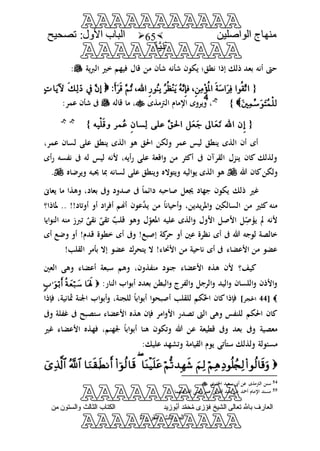 منهاج الواصلين
65
الباب الأول: تصحيح
حتى أنه بعد ذلك إذا نطق؛ يكون شأنه شأن من قال فيهم خير البرية ﷺ:
{ اتَّقُوا فِرَاسَةَ الْمُؤْمِنِ، فَإِنَّهُ يَنْظُرُ بِنُورِ اللَّهِ، ثُمَّ قَرَأَ: ﴿ إِنَّ فِي ذَلِكَ لَآيَاتٍ
لِلْمُتَوَسِّمِينَ ﴾ }٥٤، ويروى الإمام الترمذى، ما قاله ﷺ فى شأن عمر:
{ إِن الله تَعَالَى جَعَلَ الحَقَّ على لِسَانِ عُمر وقَلْبِه }٥٥
أى أن الذى ينطق ليس عمر ولكن الحق هو الذى ينطق على لسان عمر،
ولذلك كان ينزل القرآن فى أكثر من واقعة على رأيه، لأنه ليس له فى نفسه رأى
ولكن كان الله ﷻ هو الذى يواليه ويتولاه وينطق على لسانه بما يحبه ويرضاه.
غير ذلك يكون جهاد يجعل صاحبه دائماً فى صدود وفى بعاد، وهذا ما يعانى
منه كثير من السالكين والمريدين، وأحياناً من يدَّعون أنهم أفراد أو أوتاد!! .. لماذا؟
لأنه لم يؤصِّل الأصل الأول والذى عليه المعوَّل وهو قلب تقىّ نقىّ تبرز منه النوايا
خالصة لوجه الله فى أى نظرة عين أو حركة إصبع! وفى أى خطوة قدم! أو وضع أى
عضو من الأعضاء فى أى ناحية من الأنحاء! لا يتحرك عضو إلا بأمر القلب!
كيف؟ لأن هذه الأعضاء جنود منفذون، وهم سبعة أعضاء وهى العين
والأذن واللسان واليد والرجل والفرج والبطن بعدد أبواب النار: ﴿ لَهَا سَبْعَةُ أَبْوَابٍ
﴾ (44 الحجر) فإذا كان الحكم للقلب أصبحوا أبواباً للجنة، وأبواب الجنة ثمانية، فإذا
كان الحكم للنفس وهى التى تصدر الأوامر فإن هذه الأعضاء ستصبح فى غفلة وفى
معصية وفى بعد وفى قطيعة عن الله وتكون هنا أبواباً لجهنم، فهذه الأعضاء غير
مسئولة ولذلك ستأتى يوم القيامة وتشهد عليك:
﴿ وَقَالُوا لِجُلُودِهِمْ لِمَ شَهِدتُّمْ عَلَيْنَا ۖ قَالُوا أَنطَقَنَا اللَّهُ الَّذِي
54 سنن الترمذى عن أبى سعيد الخدرى
55 مسند الإمام أحمد
العارف بالله تعالى الشيخ فوزى محمد أبوزيد
الكتاب الثالث والستون من